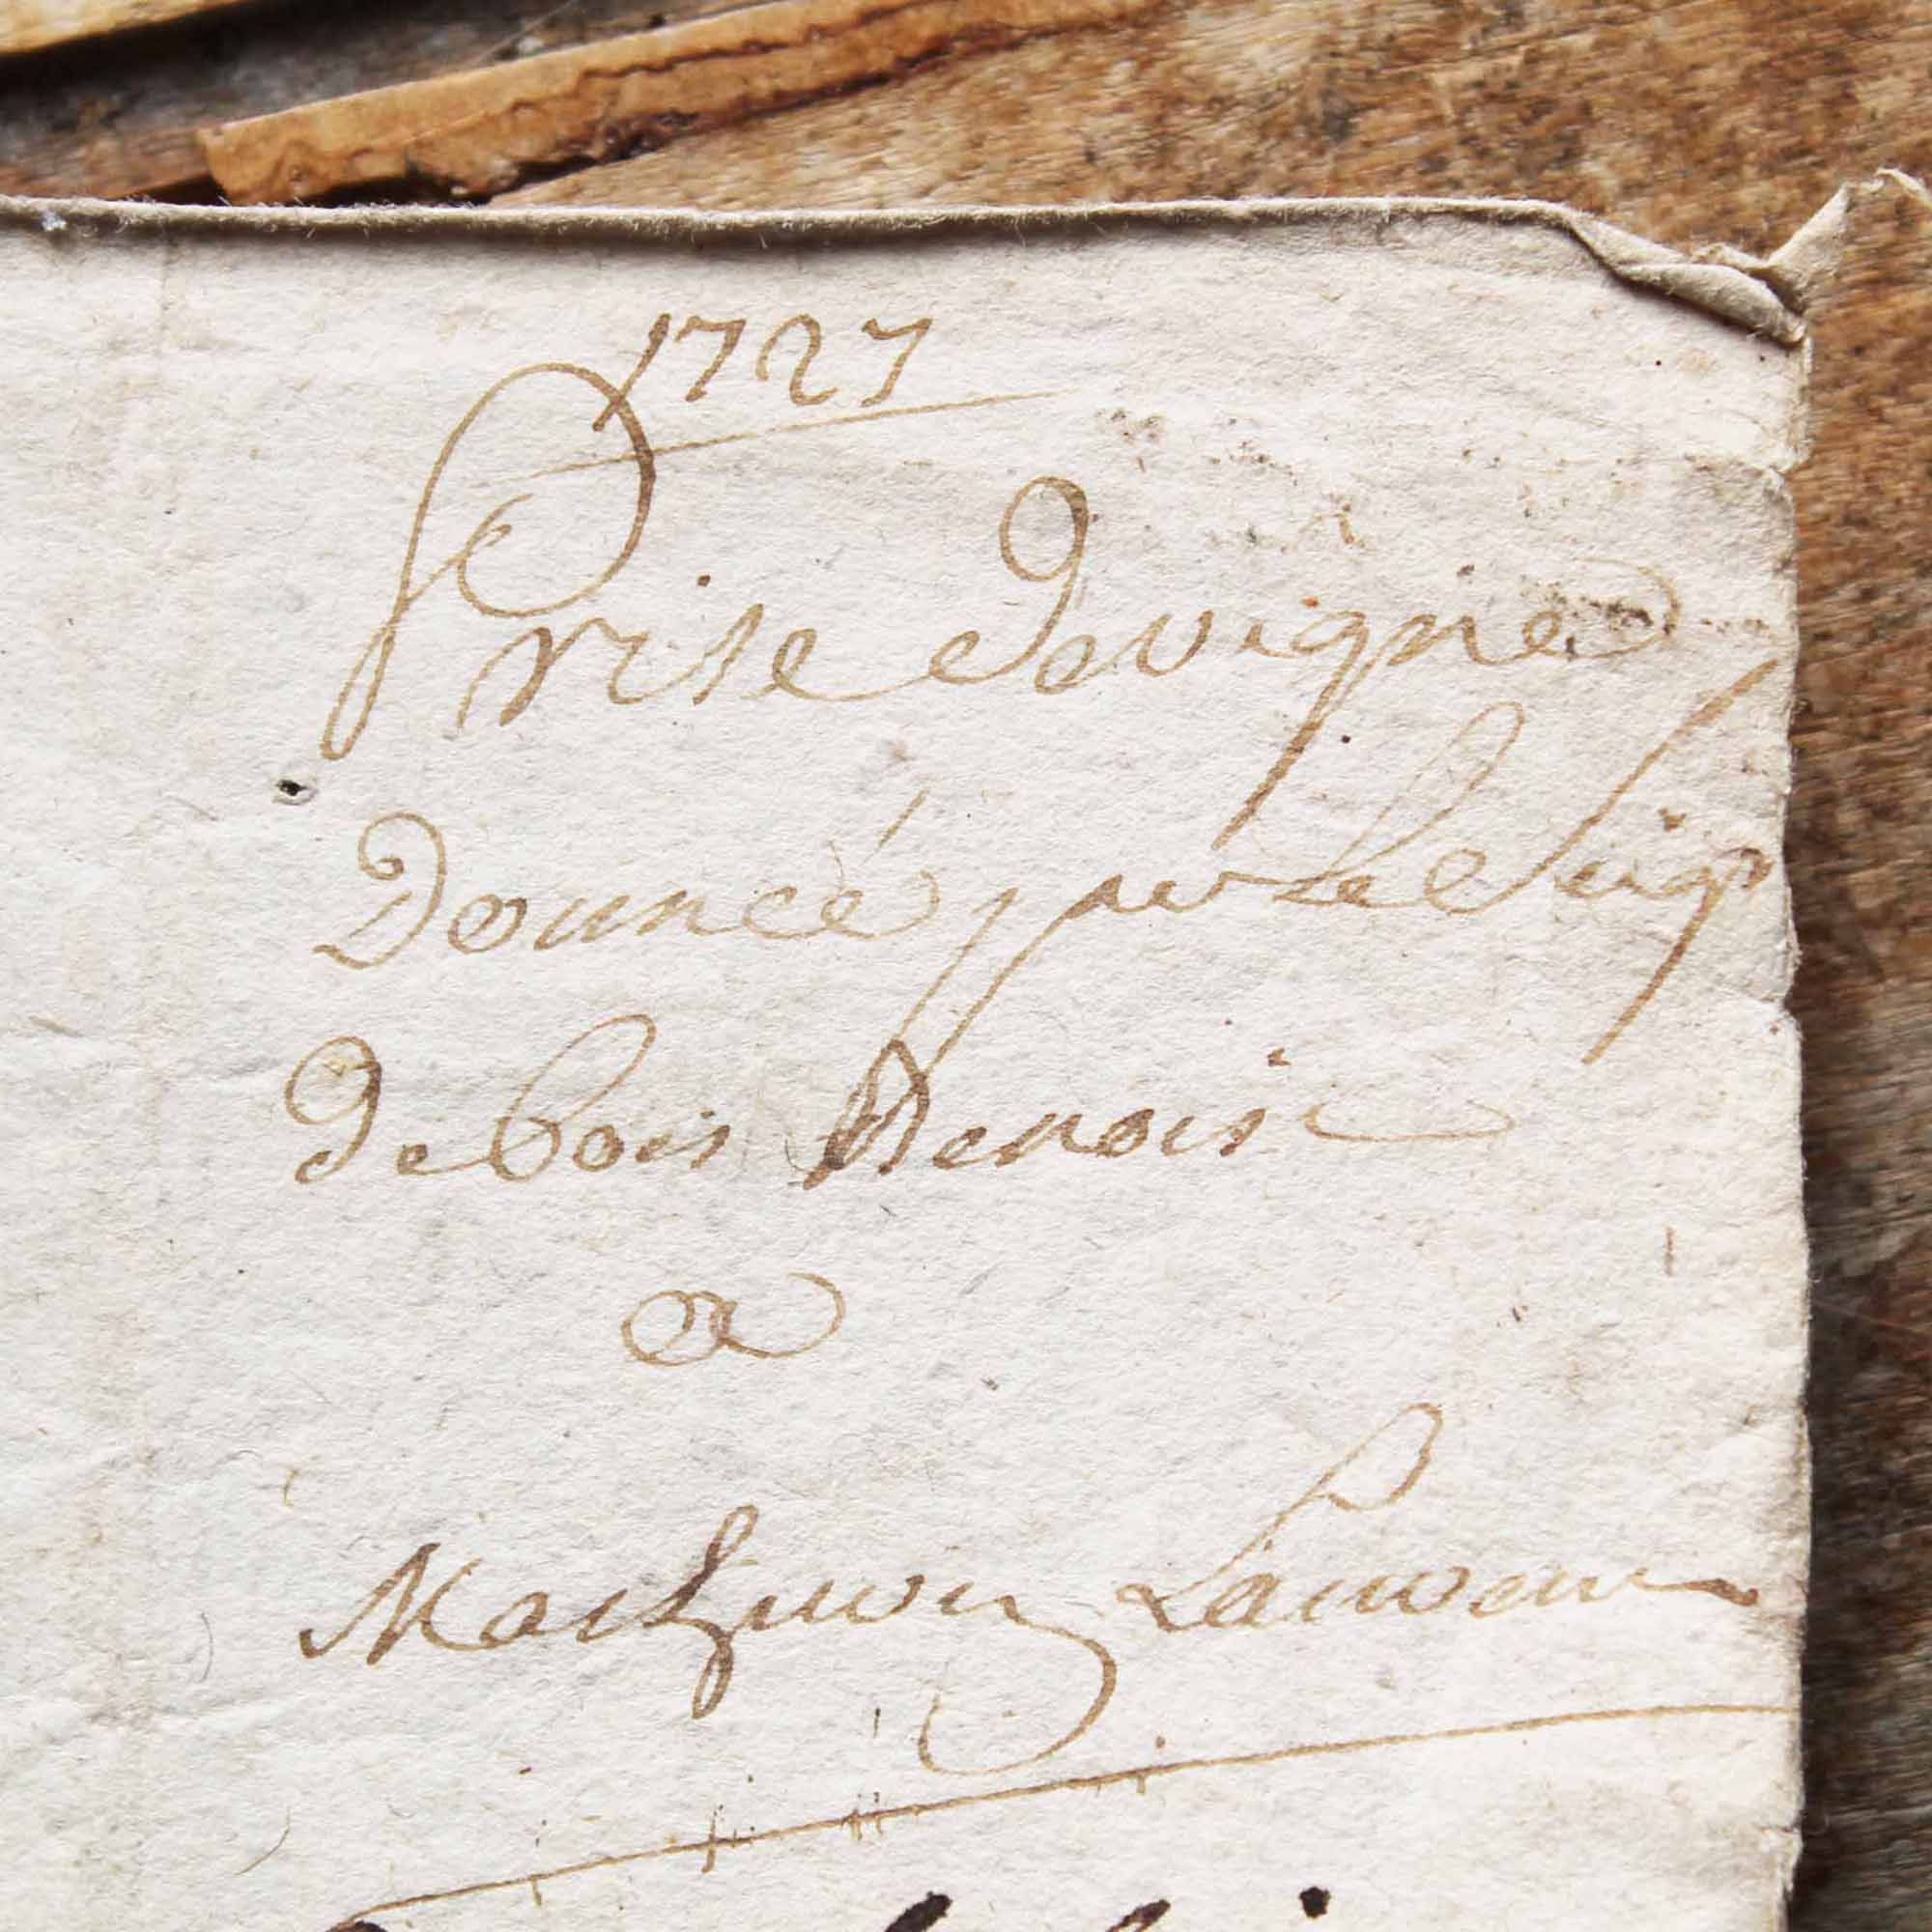 1727
Prise de vigne
Donnée par le Seigr
de bois Benoist
a
Mathurin Laurent